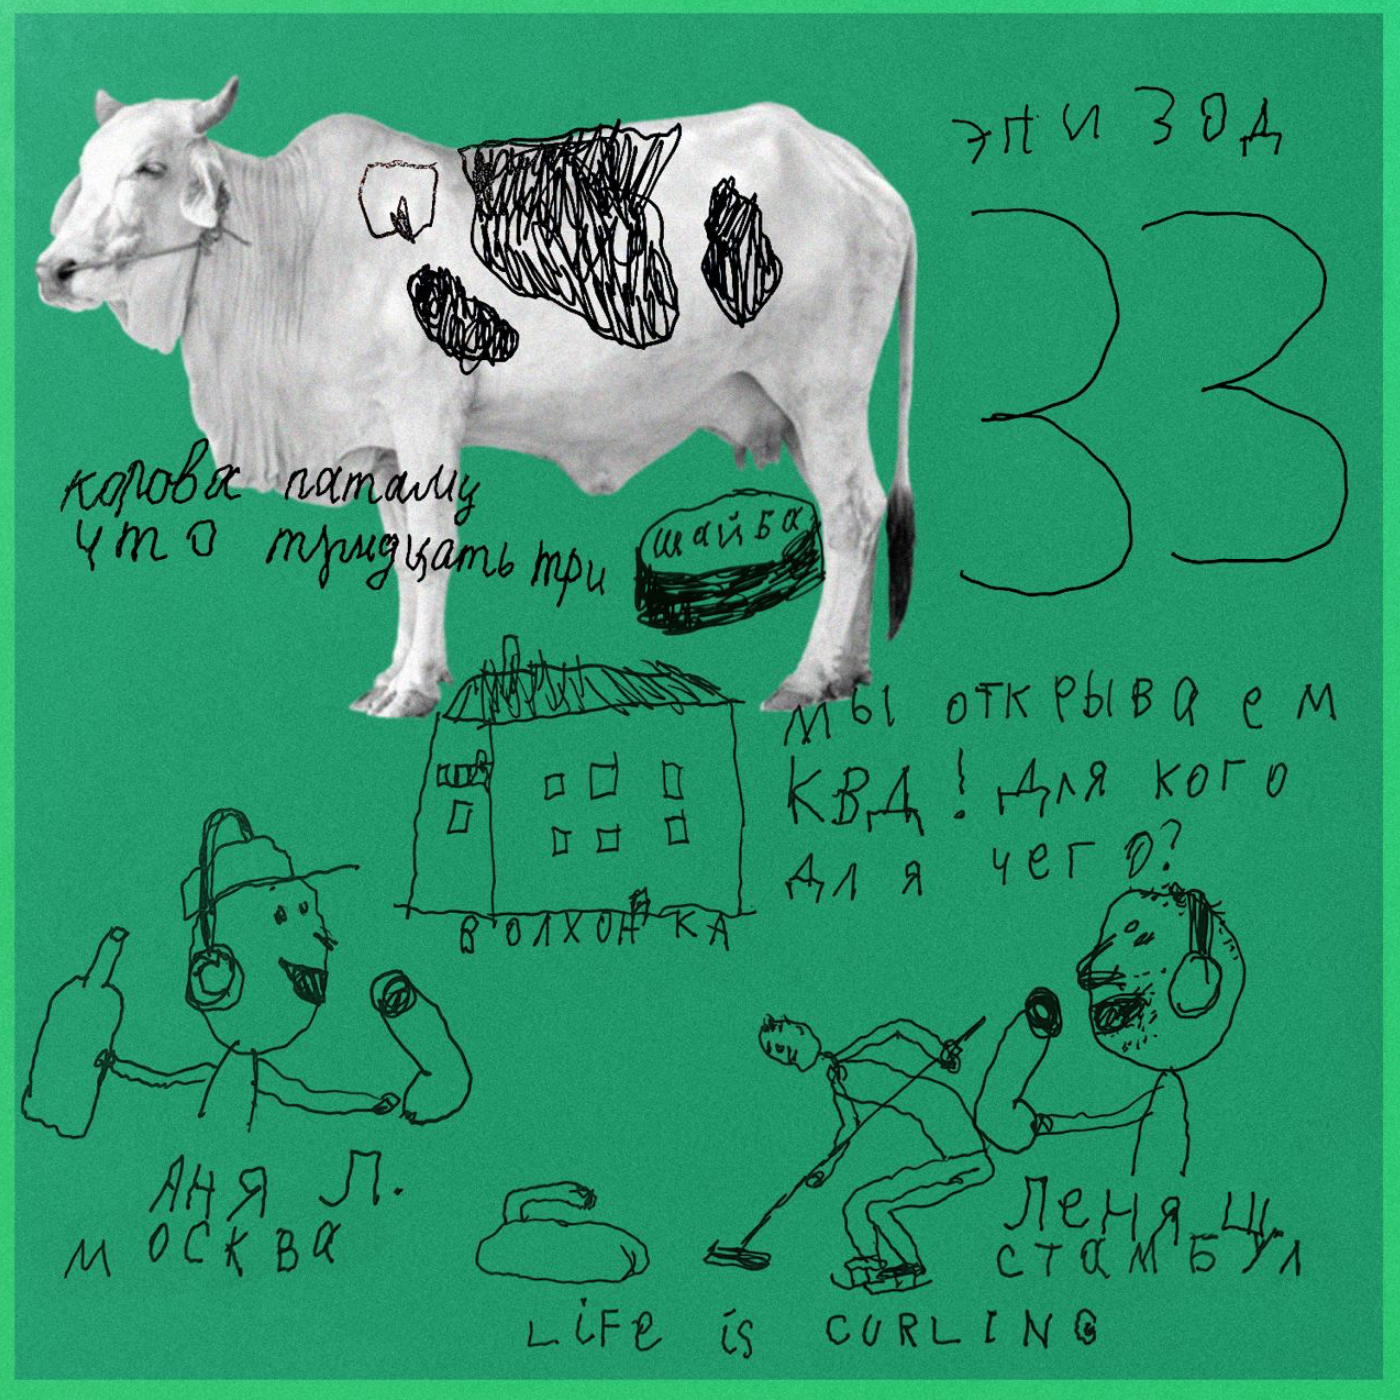 эпизод
33
корова патаму
что тридцать три
шайба
мы открываем
КВД! Для кого
для чего?
ВОЛХОНКА
Аня Л.
москва
Леня Щ.
стамбул
LiFe is CURLING